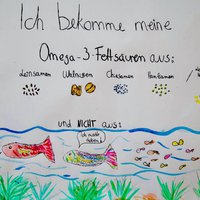 Ich bekomme meine
Omega-3-Fettsäuren aus:
Leinsamen Walnüssen Chiasamen Hanfsamen
und NICHT aus: